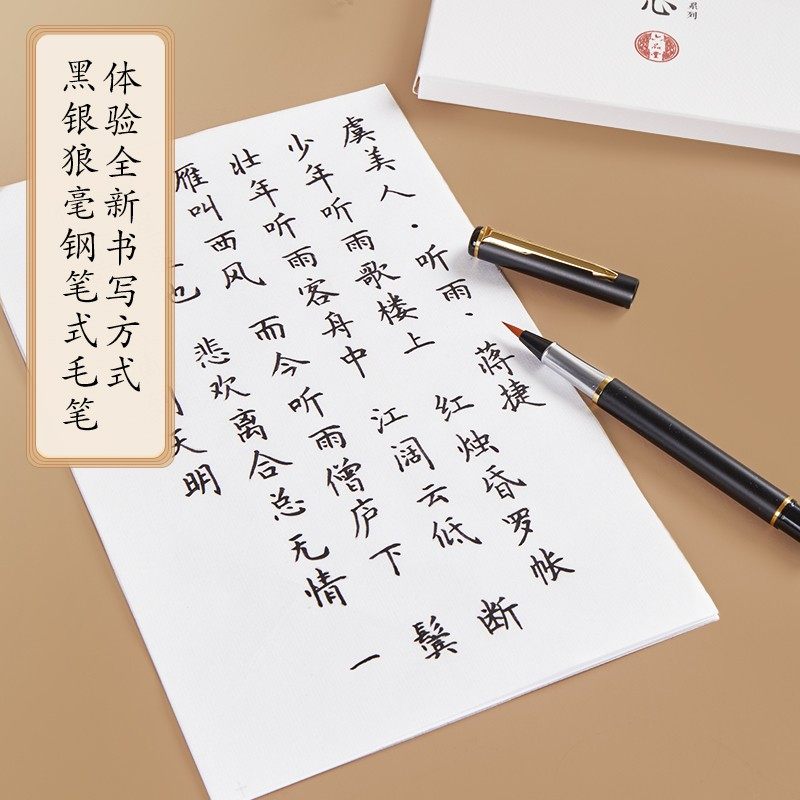 体验全新书写方式
黑银狼毫钢笔式毛笔
虞美人·听雨·蒋捷
少年听雨歌楼上 红烛昏罗帐
壮年听雨客舟中 江阔云低 断
雁叫西风 而今听雨僧庐下 鬓
悲欢离合总无情 一
天明
系列